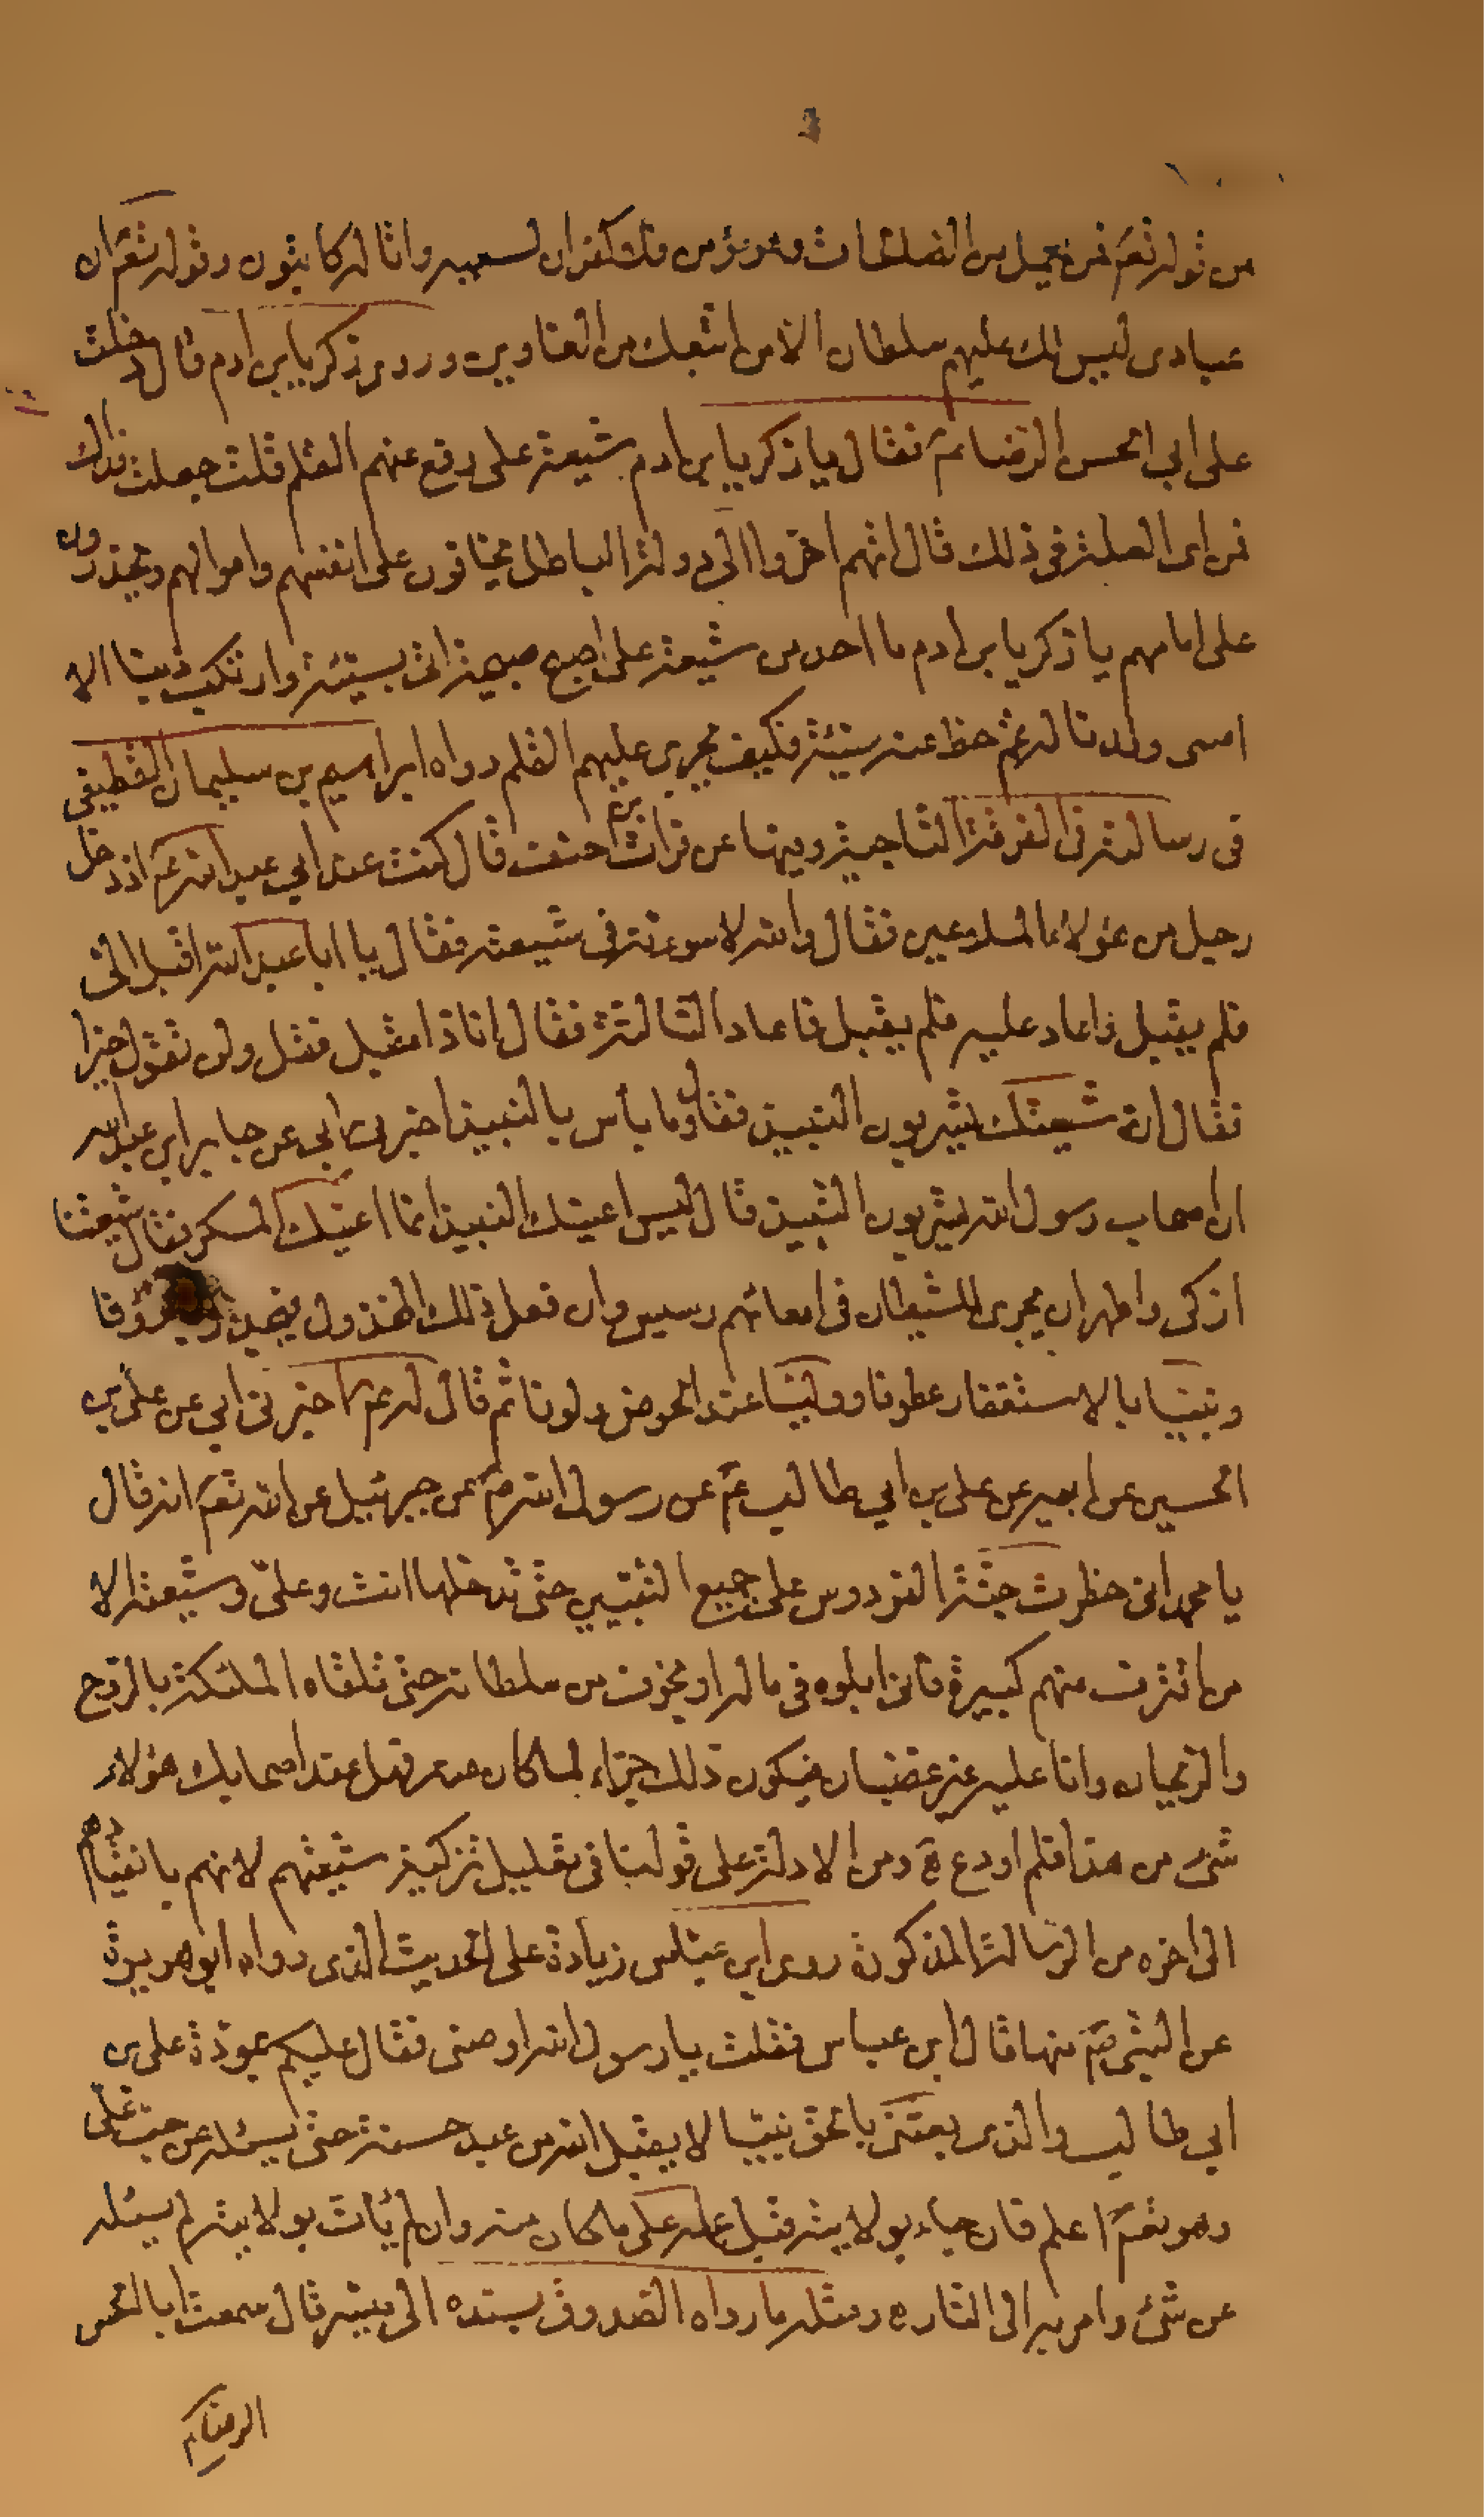 من قوله تعم فمن يعمل من الصلحات وهو مؤمن فلا كفران لسعيه وانا له كاتبون وقوله تعم ان
عبادي ليس لك عليهم سلطان الا من اتبعك من الغاوين وروي زكريا بن ادم قال دخلت
على ابي الحسن الرضا عم فقال يا زكريا بن ادم شيعة على رفع عنهم القلم قلت جعلت فداك
فمن اى العلة في ذلك قال انهم اخروا الى دولة الباطل يخافون على انفسهم واموالهم ويحذرون
على امامهم يا زكريا بن ادم ما احد من شيعة على اصبح صبيحة اتى بسيئة وارتكب ذنبا الا
امسى وقد ناله غم حط عنه سيئة فكيف يجرى عليهم القلم رواه ابراهيم بن سليمان القطيفى
في رسالته في الفرقة الناجية وفيها عن فرات بن احنف قال كنت عند ابي عبد الله عم اذ دخل
رجل من هؤلاء الملاعين فقال والله لاسوءنه في شيعته فقال يا ابا عبد الله اقبل الى
فلم يقبل فاعاد عليه فلم يقبل فاعاد الثالثة فقال انا ذا مقبل فقل ولن تقول خيرا
فقال ان شيعتك يشربون النبيذ فقال وما بأس بالنبيذ اخبرنى ابي عن جابر ابن عبد الله
ان اصحاب رسول الله يشربون النبيذ قال ليس اعينك النبيذ انما اعينك المسكر فقال شيعتنا
ازكى واطهر ان يجرى للشيطان في امعائهم رسيس وان فعل ذلك المخذول فيجد رؤفا
ونبيا بالاستغفار عطوفا ووليا عند الحوض ولوفا ثم قال له عم اخبرنى ابي عن على بن
الحسين عن ابيه عن على بن ابي طالب عم عن رسول الله صم عن جبرئيل عن الله تعم انه قال
يا محمد انى حظرت جنة الفردوس على جميع النبيين حتى تدخلها انت وعلى وشيعته الا
من اقترف منهم كبيرة فانى ابلوه في ماله او بخوف من سلطانه حتى تلقاه الملئكة بالروح
والريحان وانا عليه غير غضبان فيكون ذلك جزاء لما كان منه فهل عند اصحابك هؤلاء
شئ من هذا فلم اودع ومن الادلة على قولنا في تقليل تزكية شيعتهم لانهم بانفسهم
الى اخره من الرسالة المذكورة روى ابن عباس زيادة على الحديث الذى رواه ابو هريرة
عن النبي صم منها قال ابن عباس فقلت يا رسول الله اوصنى فقال عليكم بمودة على بن
ابي طالب والذى بعثنى بالحق نبيا لا يقبل الله من عبد حسنة حتى يسئله عن حب على
وهو تعم اعلم فان جاء بولايته قبل عمله على ما كان منه وان لم يأت بولايته لم يسئله
عن شئ وامر به الى النار ومثله ما رواه الصدوق بسنده الى ميسر قال سمعت ابا الحسن
الرضا عم